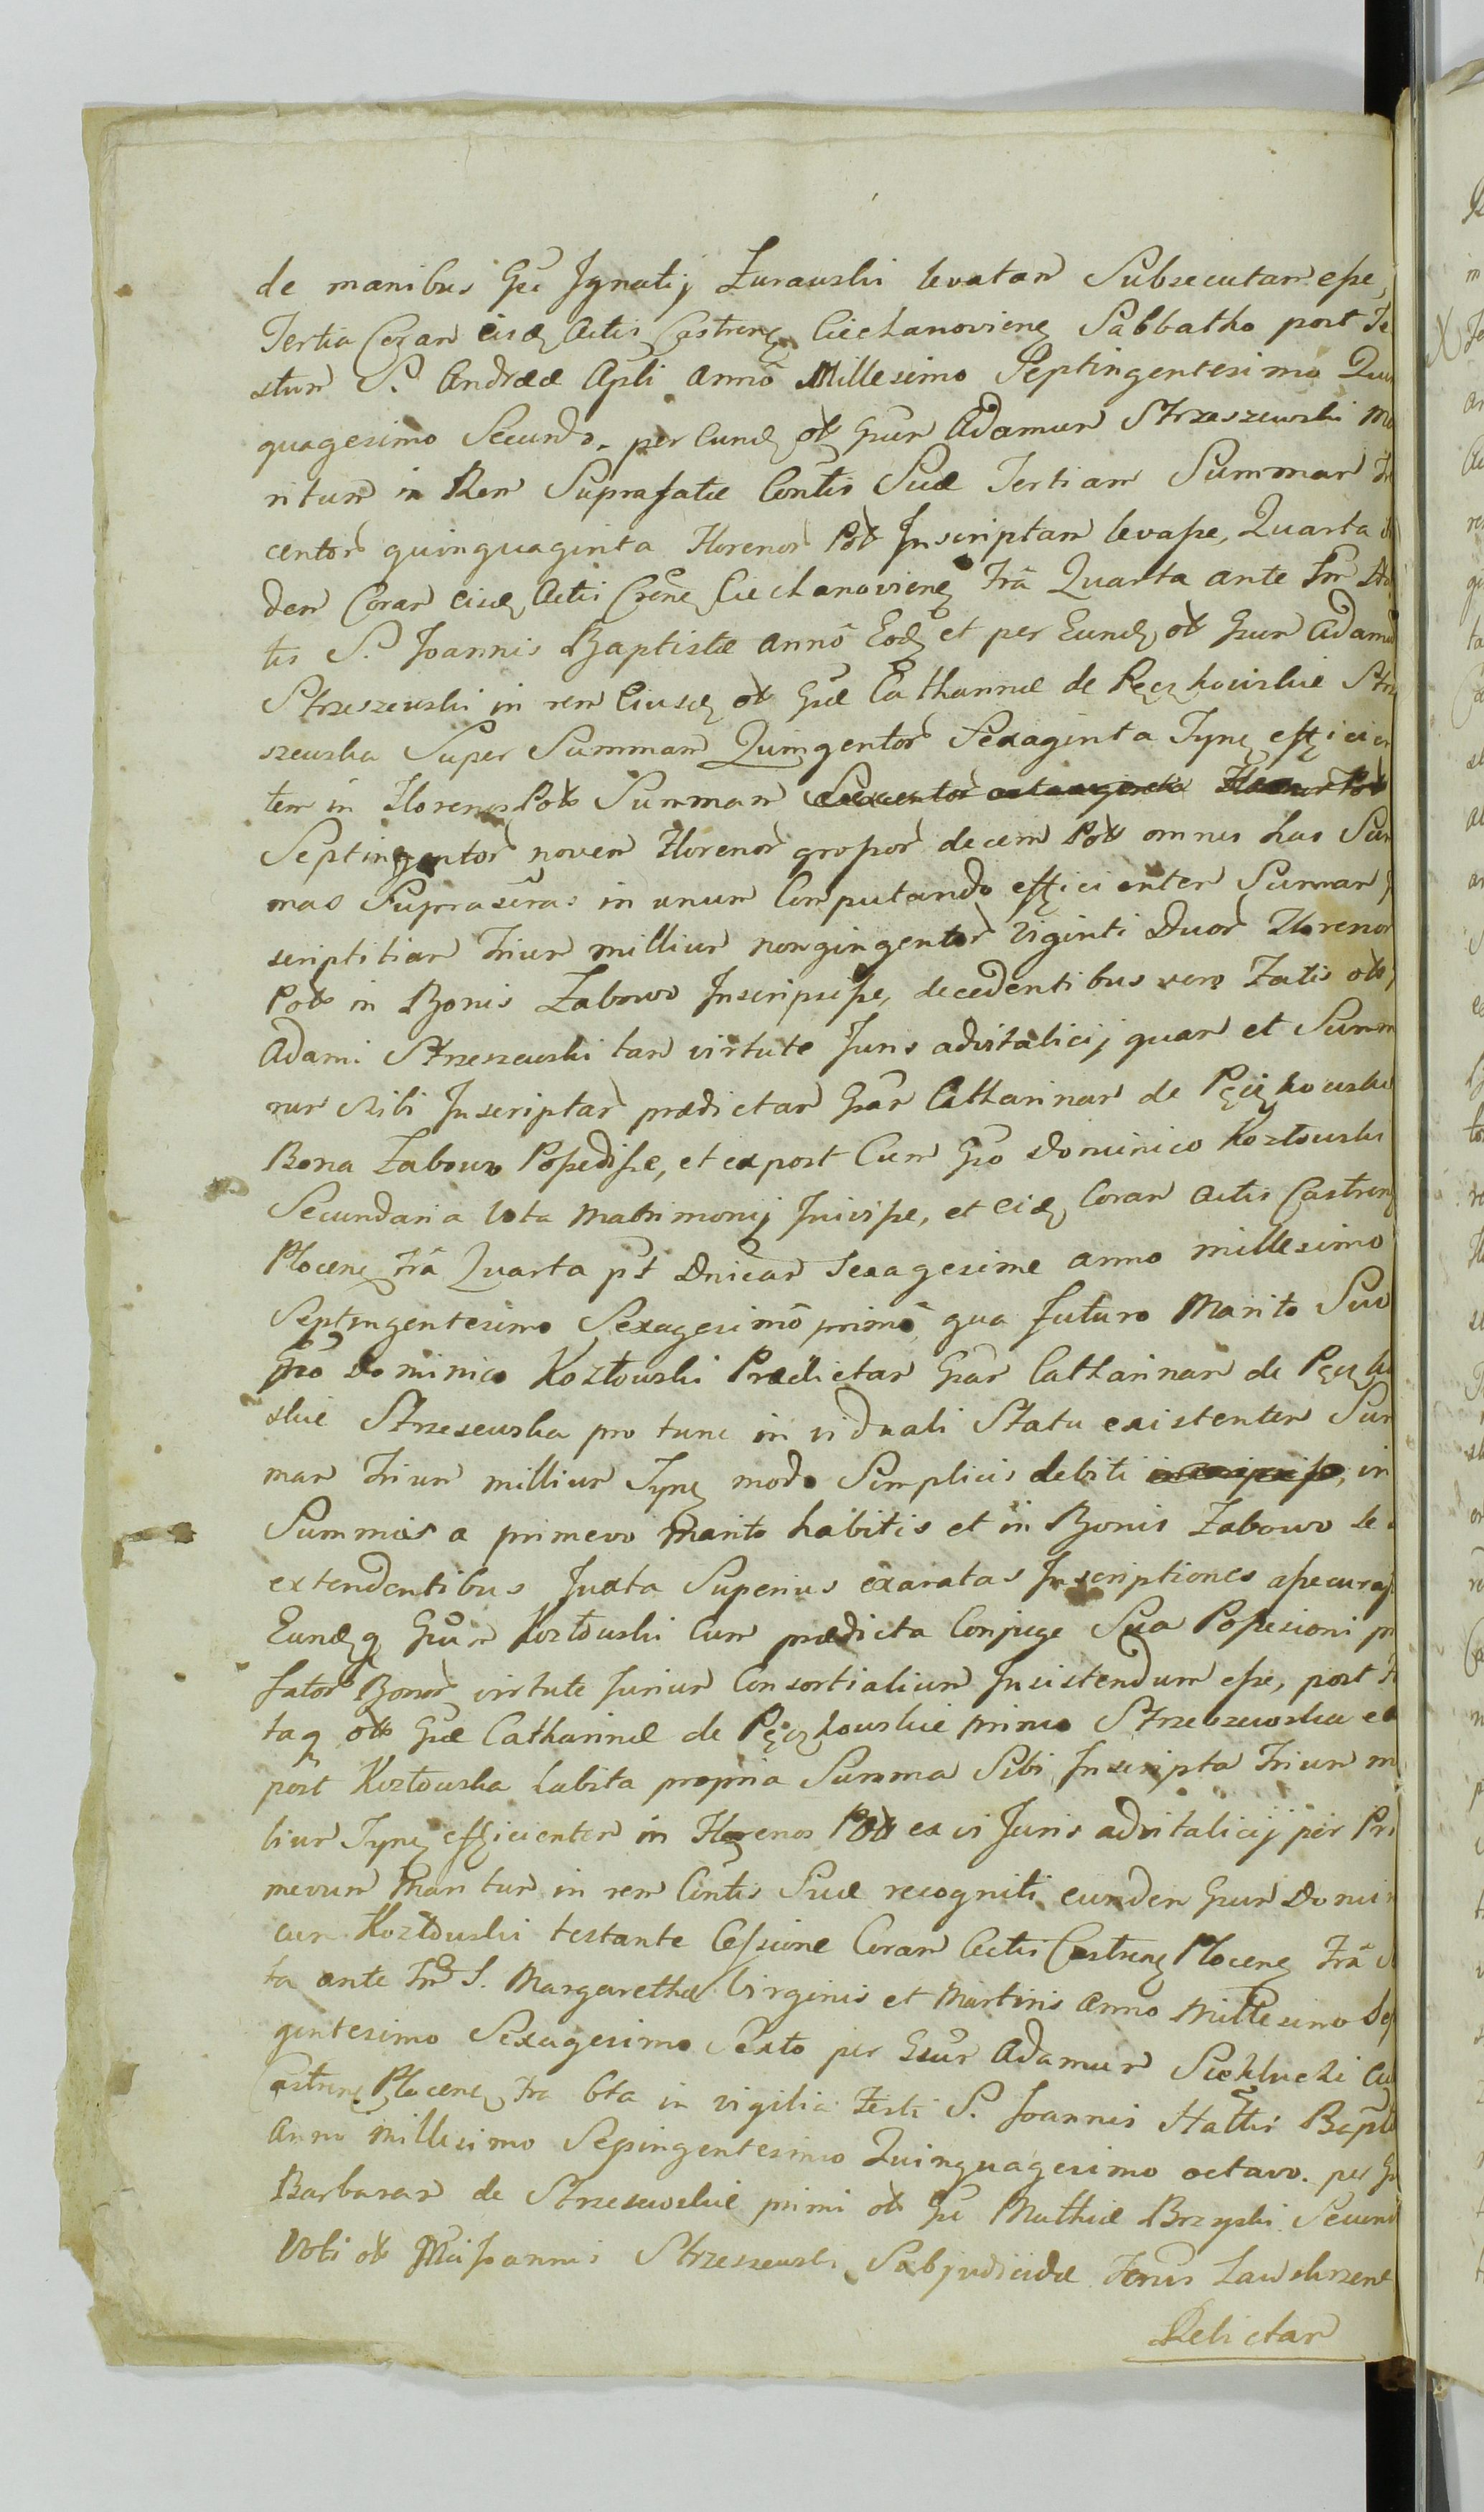 de manibus Gsi Ignatij Zurawski levatam Subsecutam esse,
Tertia Coram eisd Actis Castren Ciechanovien Sabbatho post Fe
stum S. Andreæ Apli Annō Millesimo Septingentesimo Quin
quagesimo Secundo. per Eund olt Gsum Adamum Strzeszewski Ma
ritum in Rem Suprafatæ Contis Suæ Tertiam Summam
centor quinquaginta Florenor Pol Inscriptam levasse, Quarta
dem Coram eisd Actis Crens Ciechanovien Fra Quarta ante Fm
tis S. Joannis Baptistæ Annō Eod et per Eund olt Gsum Adamum
Strzeszewski in rem Eiusd olt Gsæ Catharinæ de Pęczkowskie Strze
szewska Super Summam Quingentor Sexaginta Tynf efficien
tem in Florenos Pol Summam
Septingentor novem Florenor grossor decem Pol omnes has Sum
mas Suprascras in unum Computando efficientem Summam
scriptitiam Trium millium nongingentor Viginti Duor Florenor
Pol in Bonis Zabowo Inscripsisse, decedentibus vero Fatis olt
Adami Strzeszewski tam virtute Juris advitalicij quam et Summ
rum Sibi Inscriptar prædictam Gsam Catharinam de Pęczkowskie
Bona Zabowo Possedisse, et expost Cum Gso Dominico Kozłowski
Secundaria Vota Matrimonij Inivisse, et eid Coram Actis Castren
Plocen Fra Quarta pst Dnicam Sexagesime anno millesimo
Septingentesimo Sexagesimō primō qua futuro Marito Suo
Gso Dominico Kozłowski Prædictam Gsam Catharinam de Pęczko
skie Strzesewska pro tunc in viduali Statu existentem Sum
mam Trium millium Tynf modo Simplicis debiti in
Summis a primevo Marito habitis et in Bonis Zabowo se
extendentibus Juxta Superius exaratas Inscriptiones assecurasse
Eundq Gsum Kozłowski Cum prædicta Conjuge Sua Possesioni
fator Bonor virtute Jurium Consortialium Insistendum esse, post
taq olt Gsæ Catharinæ de Pęczkowskie primo Strzeszewska ex
post Kozłowska habita propria Summa Sibi Inscripta Trium
lium Tynf efficientem in Florenos Pol ex vi Juris advitalicij per Pri
mevum Maritum in rem Contis Suæ recogniti eundem Gsum Domini
cum Kozłowski testante Cessione Coram Actis Castren Plocen Fra
ta ante Fm S. Margarethæ Virginis et Martiris Anno Millesimo Sep
gentesimo Sexagesimo Sexto per Gsum Adamum
Castren Plocen Fra 6ta in vigilia Festi S. Joannis Battis
Anno millesimo Sepingentesimo Quinquagesimo octavo. per
Barbaram de Strzesewskie primi olt Gsi Mathiæ Brzyski Secund
Voti olt Joannis Strzeszewski Subjudicidæ Zawskrzens
Relictam